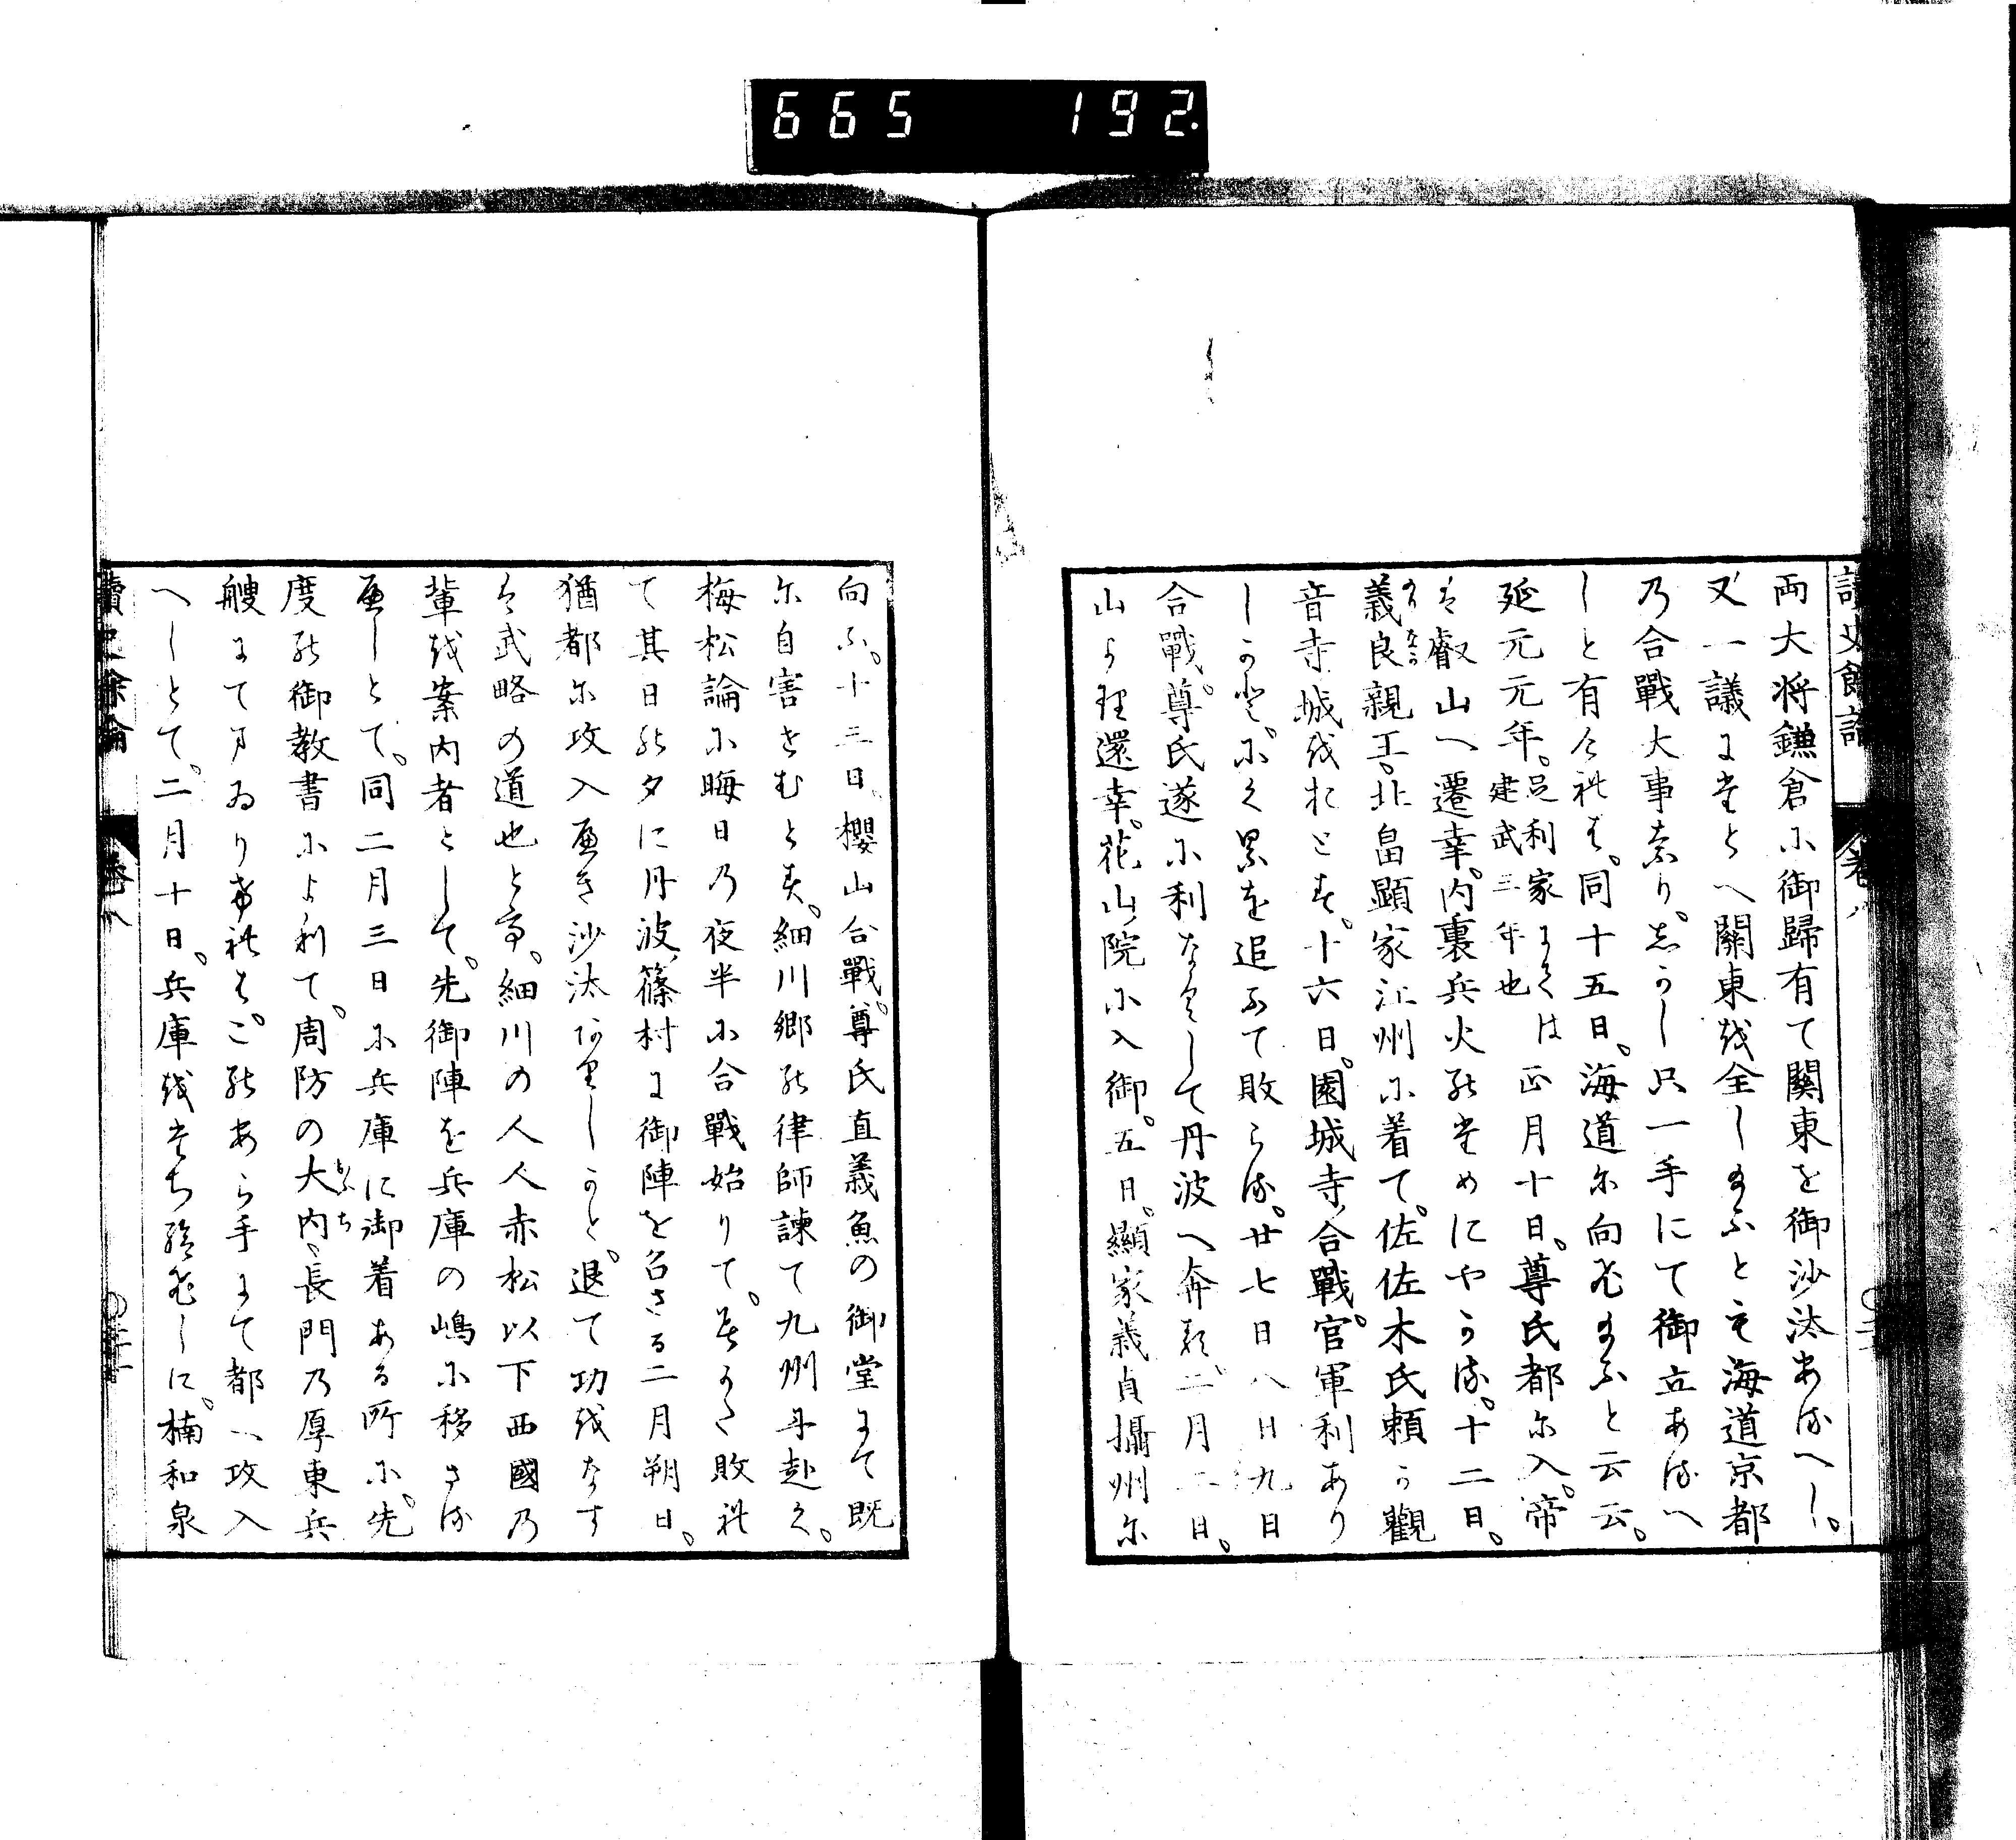 665 192.
讀史餘論 卷八
両大将鎌倉に御歸有て関東を御沙汰あるへし。
又一議にたとへ關東を全し給ふとも海道京都
の合戰大事なり。しかし只一手にて御立あるへ
しと有けれは。同十五日。海道に向ひ給ふと云云。
延元元年。足利家にては建武三年也 正月十日。尊氏都に入。帝
は叡山へ遷幸。内裏兵火のためにやかる。十二日。
義良親王。北畠顕家江州に着て。佐佐木氏頼か觀
音寺城をおとす。十六日。園城寺合戰。官軍利あり
しかと。にくる を追ふて敗らる。廿七日八日九日
合戰。尊氏遂に利なくして丹波へ奔る。二月二日。
山より還幸。花山院に入御。五日。顯家義貞攝州に
向ふ。十三日。櫻山合戰。尊氏直義魚の御堂にて既
に自害せむとす。細川郷の律師諫て九州に赴く。
梅松論に晦日の夜半に合戰始りて。 敗れ
て其日の夕に丹波篠村に御陣を召さる二月朔日。
猶都に攻入へき沙汰ありしかと。退て功をなす
は武略の道也とて。細川の人人赤松以下西國の
輩を案内者として。先御陣を兵庫の嶋に移さる
へしとて。同二月三日に兵庫に御着ある所に。先
度の御教書によりて。周防の大内、長門の厚東兵
艘にてまゐりけれは。このあら手にて都へ攻入
へしとて。二月十日。兵庫をたち給ひしに。楠和泉
讀史餘論 卷八